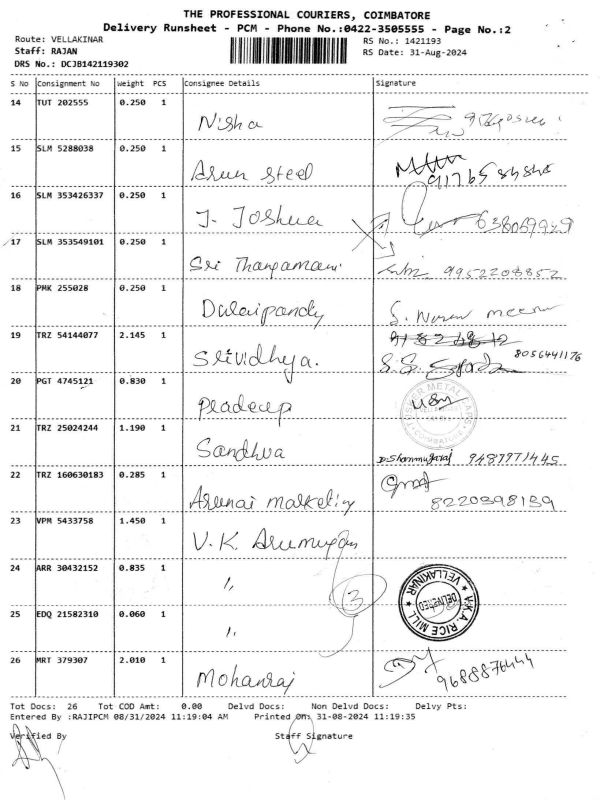 THE PROFESSIONAL COURIERS, COIMBATORE
Delivery Runsheet - PCM - Phone No.:0422-3505555 - Page No.:2
Route: VELLAKINAR
RS No.: 1421193
Staff: RAJAN
RS Date: 31-Aug-2024
DRS No.: DCJB142119302
S No Consignment No Weight PCS Consignee Details Signature
14 TUT 202555 0.250 1 Nisha
15 SLM 5288038 0.250 1 Arun Steel
16 SLM 353426337 0.250 1 J. Joshua
17 SLM 353549101 0.250 1 Sri Thangamani 9952208852
18 PMK 255028 0.250 1 Dulaipandy
19 TRZ 54144077 2.145 1 Srividhya. 8056441176
20 PGT 4745121 0.830 1 Pradeep
21 TRZ 25024244 1.190 1 Sandhva 9487971445
22 TRZ 160630183 0.285 1 Arunai marketing 8220398139
23 VPM 5433758 1.450 1 V.K. Arumugam
24 ARR 30432152 0.835 1 "
3
25 EDQ 21582310 0.060 1 "
V.K.A. RICE MILL VELLAKINAR DELIVERED
26 MRT 379307 2.010 1 Mohanraj 9688876444
Tot Docs: 26 Tot COD Amt: 0.00 Delvd Docs: Non Delvd Docs: Delvy Pts:
Entered By :RAJIPCM 08/31/2024 11:19:04 AM Printed On: 31-08-2024 11:19:35
Verified By Staff Signature